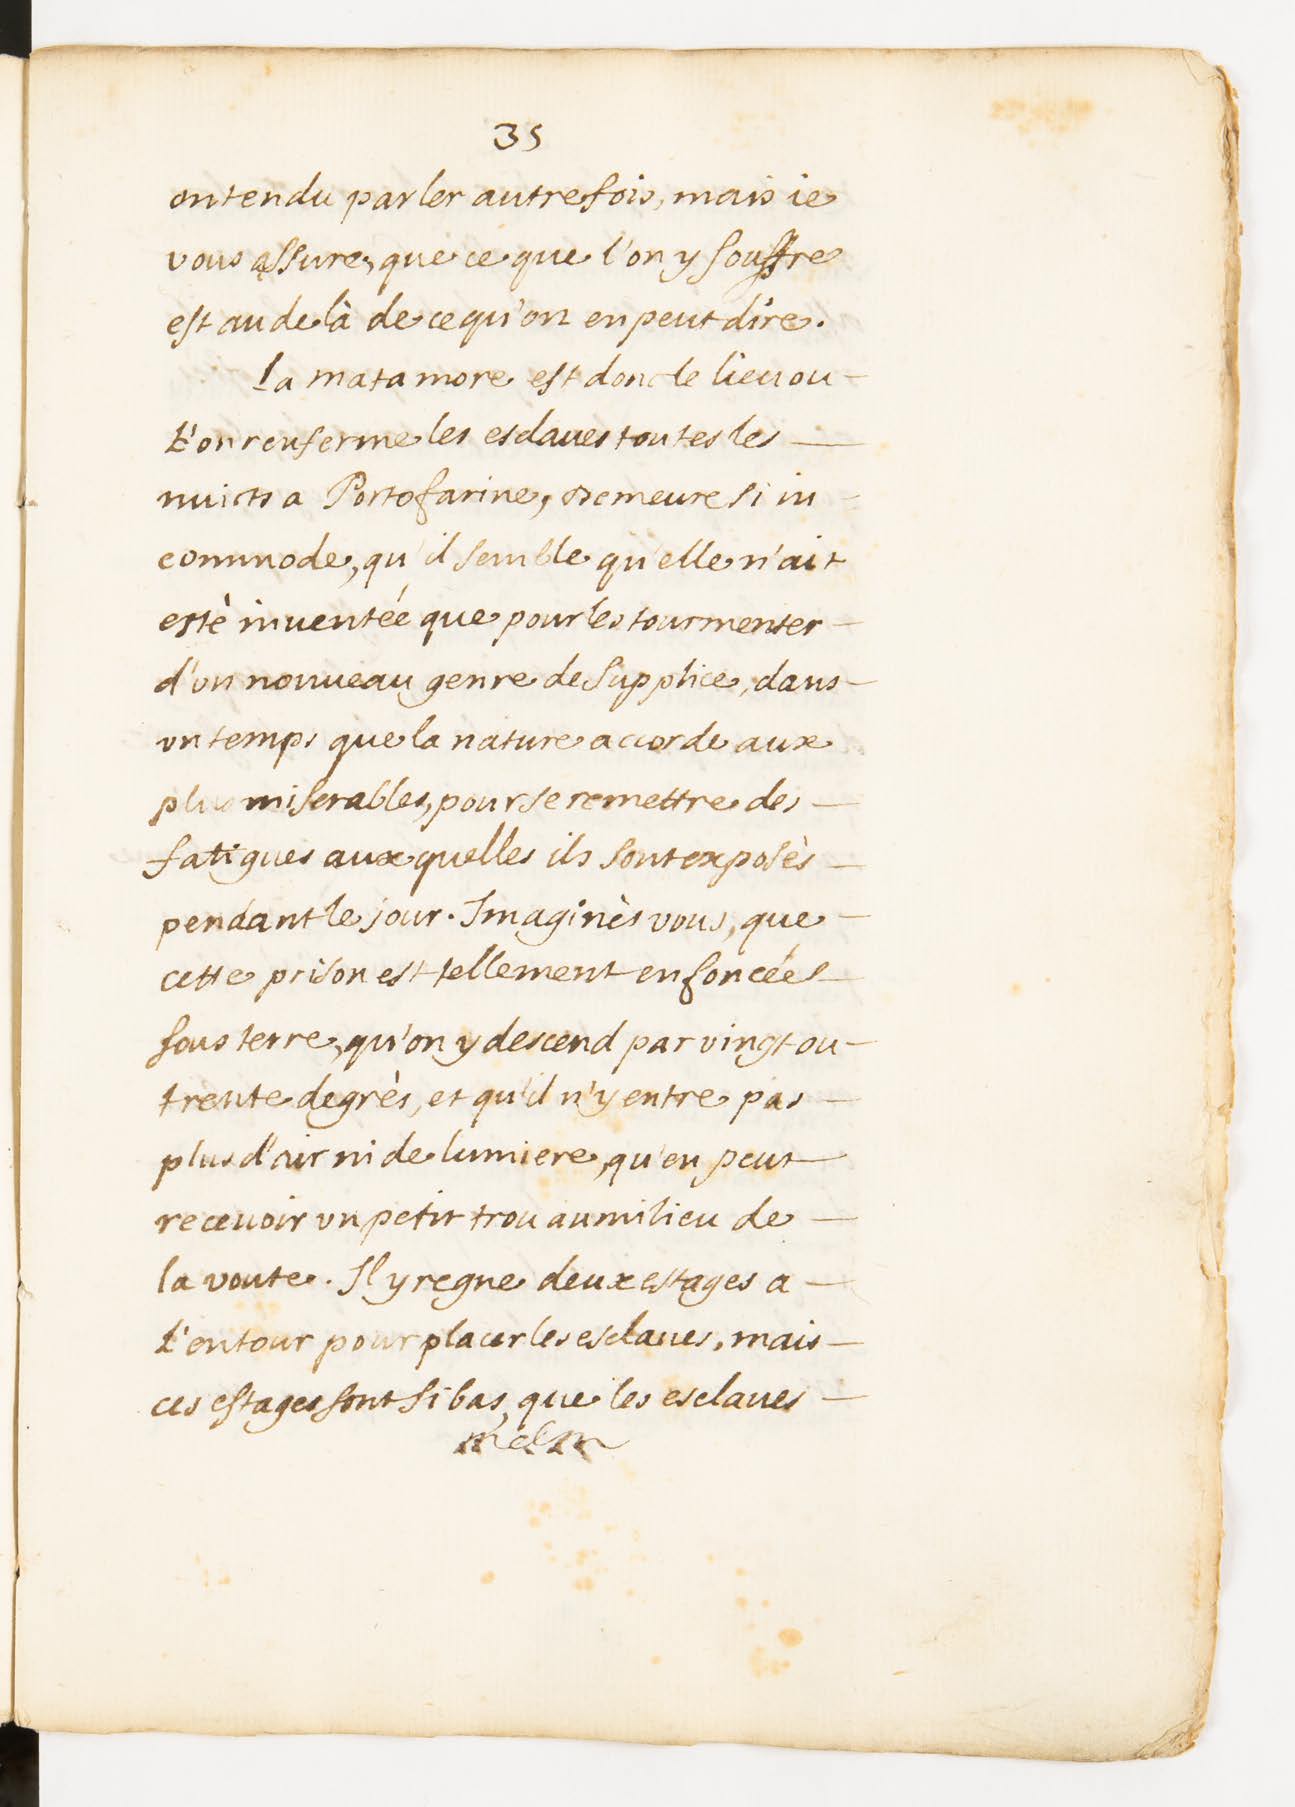 35
entendu parler autrefois, mais ie
vous assure, que ce que l'on y souffre
est au de là de ce qu'on en peut dire.
La matamore est donc le lieu ou
l'on renferme les esclaues toutes les
nuicts a Portofarine, Demeure si in
commode, qu'il semble qu'elle n'ait
estè inuentée que pour les tourmenter
d'un nouueau genre de supplice, dans
vn temps que la nature accorde aux
plus miserables, pour se remettre des
fatigues aux quelles ils sont exposès
pendant le jour. Imaginès vous, que
cette prison est tellement enfoncée
sous terre, qu'on y descend par vingt ou
trente degrès, et qu'il n'y entre pas
plus d'air ni de lumiere, qu'en peut
receuoir vn petit trou au milieu de
la voute. Il y regne deux estages a
l'entour pour placer les esclaues, mais
ces estages sont si bas, que les esclaues